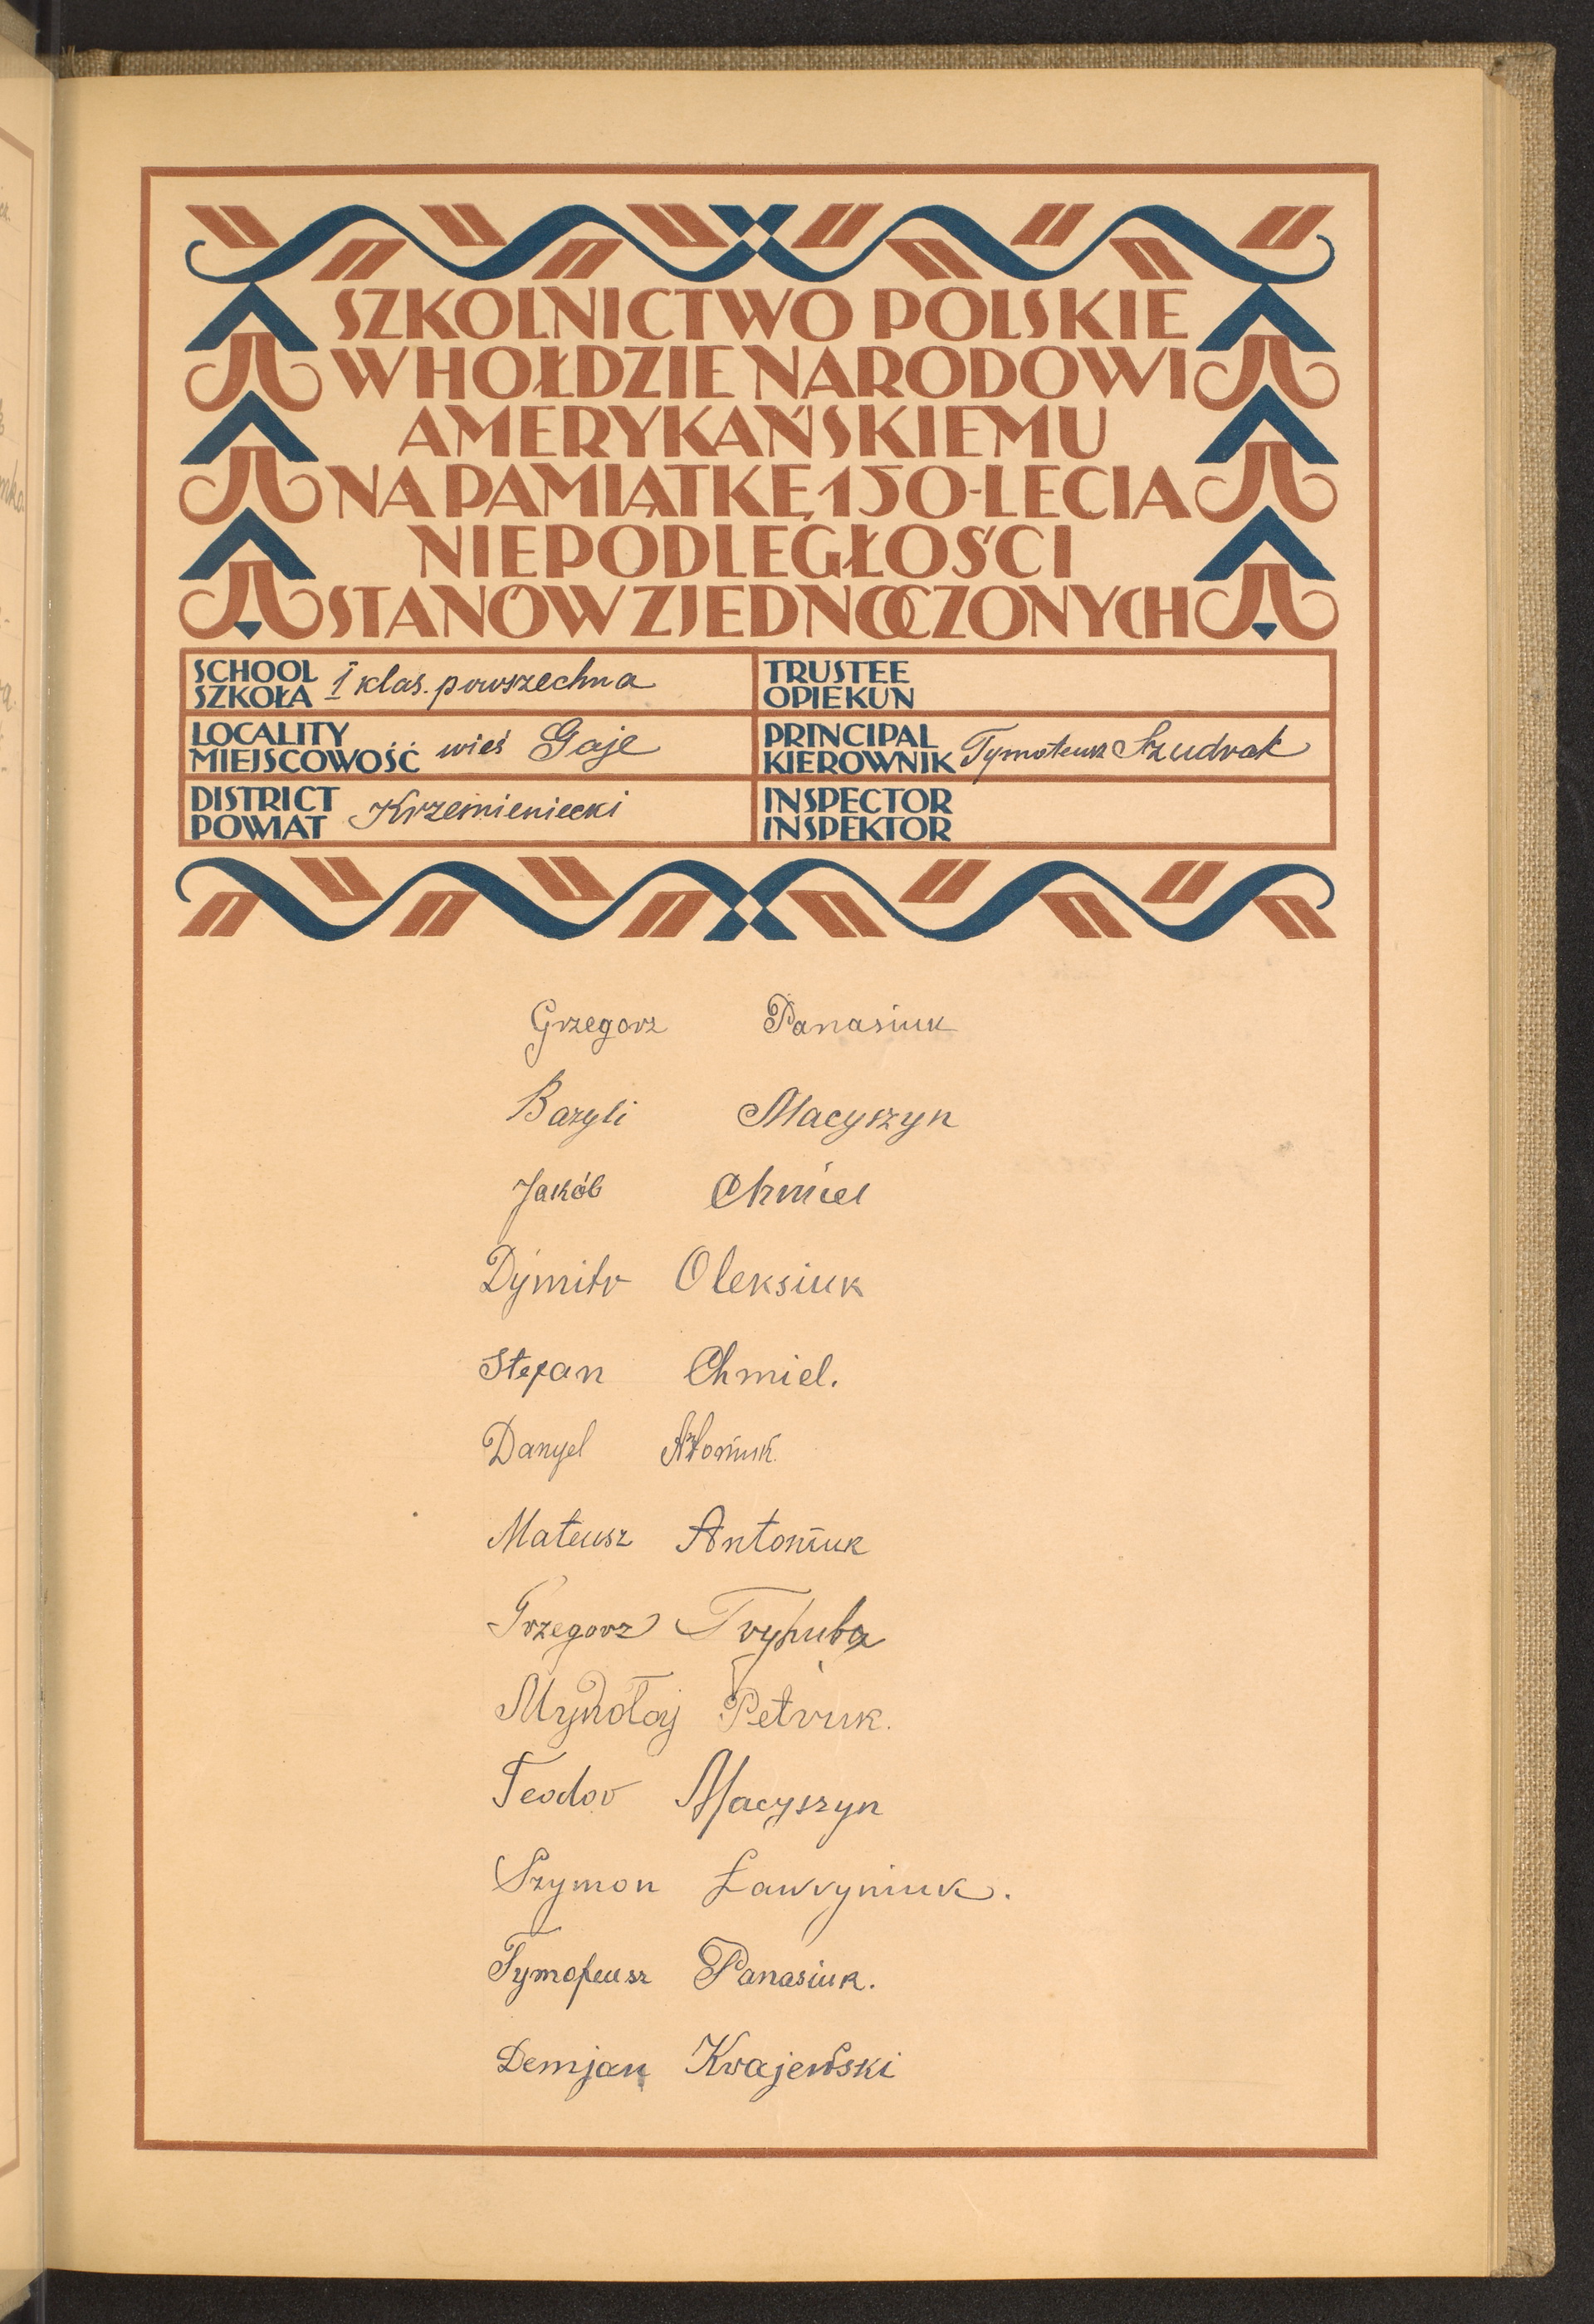 SZKOLNICTWO POLSKIE
W HOŁDZIE NARODOWI
AMERYKAŃSKIEMU
NA PAMIĄTKĘ 150-LECIA
NIEPODLEGŁOŚCI
STANÓW ZJEDNOCZONYCH
SCHOOL
SZKOŁA I klas. powszechna
LOCALITY
MIEJSCOWOŚĆ wieś Gaje
DISTRICT
POWIAT Krzemieniecki
TRUSTEE
OPIEKUN
PRINCIPAL
KIEROWNIK Tymoteusz Szudrak
INSPECTOR
INSPEKTOR
Grzegorz Panasiuk
Bazyli Macyszyn
Jakób Chmiel
Dymitr Oleksiuk
Stefan Chmiel.
Danyel
Mateusz Antoniuk
Grzegorz Tryhuba
Mykołaj Petruk.
Teodor Macyszyn
Szymon Ławryniuk.
Tymofeusz Panasiuk.
Demjan Krajewski